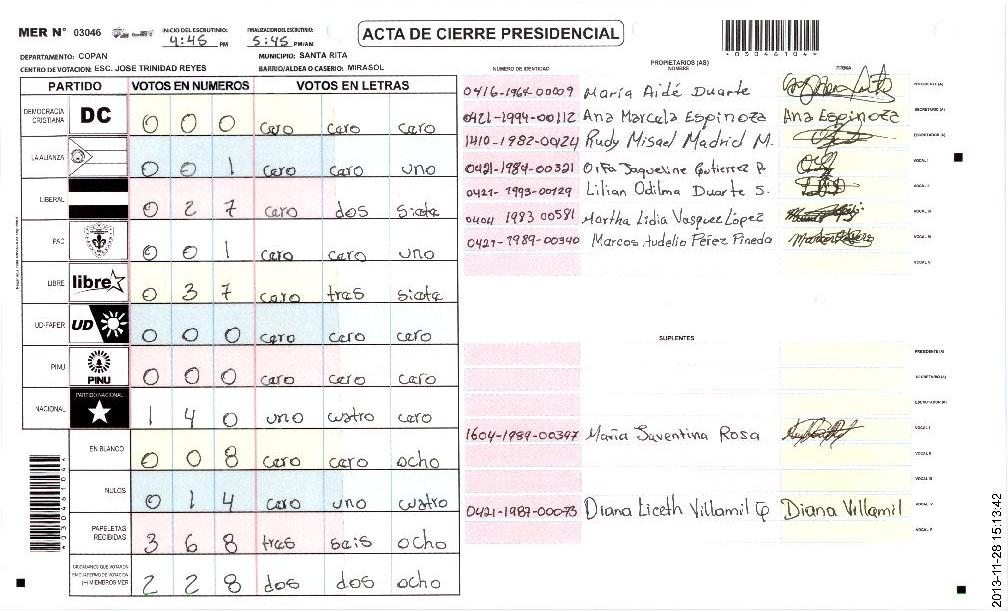 MER N° 03046
INICIO DEL ESCRUTINIO: 4:45 PM
FINALIZACION DEL ESCRUTINIO: 5:45 PM/AM
ACTA DE CIERRE PRESIDENCIAL
*03046104*
DEPARTAMENTO: COPAN
MUNICIPIO: SANTA RITA
CENTRO DE VOTACION: ESC. JOSE TRINIDAD REYES
BARRIO/ALDEA O CASERIO: MIRASOL
PARTIDO VOTOS EN NUMEROS VOTOS EN LETRAS
DEMOCRACIA CRISTIANA DC 0 0 0 cero cero cero
LA ALIANZA 0 0 1 cero cero uno
LIBERAL 0 2 7 cero dos siete
PAC 0 0 1 cero cero uno
LIBRE libre 0 3 7 cero tres siete
UD-FAPER UD 0 0 0 cero cero cero
PINU PINU 0 0 0 cero cero cero
NACIONAL PARTIDO NACIONAL 1 4 0 uno cuatro cero
EN BLANCO 0 0 8 cero cero ocho
NULOS 0 1 4 cero uno cuatro
PAPELETAS RECIBIDAS 3 6 8 tres seis ocho
CIUDADANOS QUE VOTARON EN CUADERNO DE VOTACION (+) MIEMBROS MER 2 2 8 dos dos ocho
*03046104*
PROPIETARIOS (AS)
NUMERO DE IDENTIDAD NOMBRE FIRMA
0416-1964-00009 María Aidé Duarte PRESIDENTE (A)
0421-1994-00112 Ana Marcela Espinoza Ana Espinoza SECRETARIO (A)
1410-1982-00124 Rudy Misael Madrid M. ESCRUTADOR (A)
0421-1984-00321 Jaqueline Gutierrez P. VOCAL I
0421-1993-00129 Lilian Odilma Duarte S. VOCAL II
0404 1983 00581 Martha Lidia Vasquez López VOCAL III
0421-1989-00340 Marcos Audelio Pérez Pineda VOCAL IV
VOCAL V
SUPLENTES
PRESIDENTE (A)
SECRETARIO (A)
ESCRUTADOR (A)
1604-1989-00397 María Saventina Rosa VOCAL I
VOCAL II
VOCAL III
0421-1987-00073 Diana Liceth Villamil Diana Villamil VOCAL IV
VOCAL V
2013-11-28 15:13:42